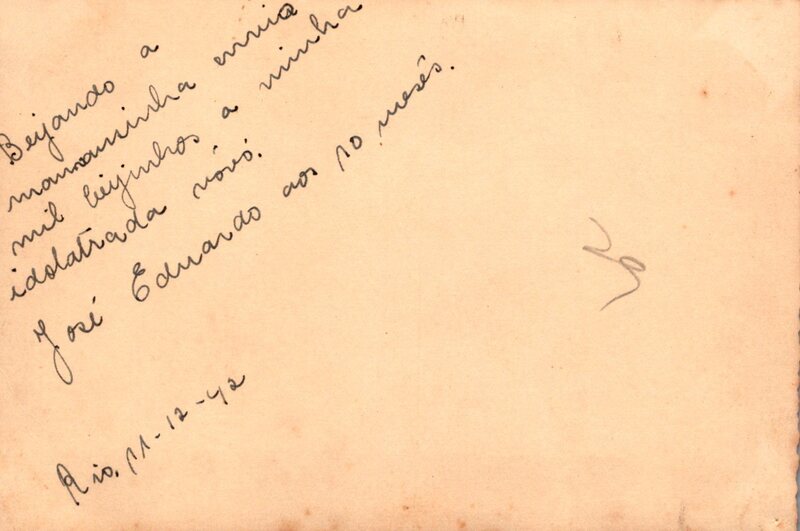 Beijando a
mamaminha envio
mil beijinhos a minha
idolatrada vóvó.
José Eduardo aos 10 mesês.
Rio, 11-12-42